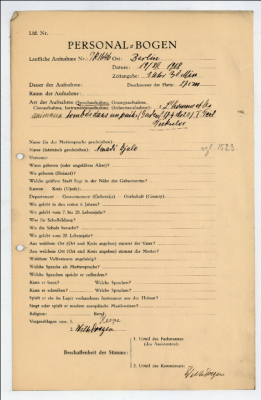 Lfd. Nr.
PERSONAL-BOGEN
Lautliche Aufnahme Nr.: Ort: Berlin
Datum:
Zeitangabe:
Dauer der Aufnahme: Durchmesser der Platte:
Raum der Aufnahme:
Art der Aufnahme (Sprechaufnahme, Gesangsaufnahme,
Choraufnahme, Instrumentenaufnahme, Orchesteraufnahme): L'homme et les
animaux
Name (in der Muttersprache geschrieben):
Name (lateinisch geschrieben): vgl. 1523.
Vorname:
Wann geboren (oder ungefähres Alter)?
Wo geboren (Heimat)?
Welche größere Stadt liegt in der Nähe des Geburtsortes?
Kanton, Kreis (Ujezd):
Department, Gouvernement (Gubernija), Grafschaft (County):
Wo gelebt in den ersten 6 Jahren?
Wo gelebt vom 7. bis 20. Lebensjahr?
Was für Schulbildung?
Wo die Schule besucht?
Wo gelebt vom 20. Lebensjahr?
Aus welchem Ort (Ort und Kreis angeben) stammt der Vater?
Aus welchem Ort (Ort und Kreis angeben) stammt die Mutter?
Welchem Volksstamm angehörig?
Welche Sprache als Muttersprache?
Welche Sprachen spricht er außerdem?
Kann er lesen? Welche Sprachen?
Kann er schreiben? Welche Sprachen?
Spielt er ein im Lager vorhandenes Instrument aus der Heimat?
Singt oder spielt er moderne europäische Musikweisen?
Religion: Beruf:
Vorgeschlagen von: 1.
2.
Beschaffenheit der Stimme:
1. Urteil des Fachmannes
(des Assistenten):
2. Urteil des Kommissars: